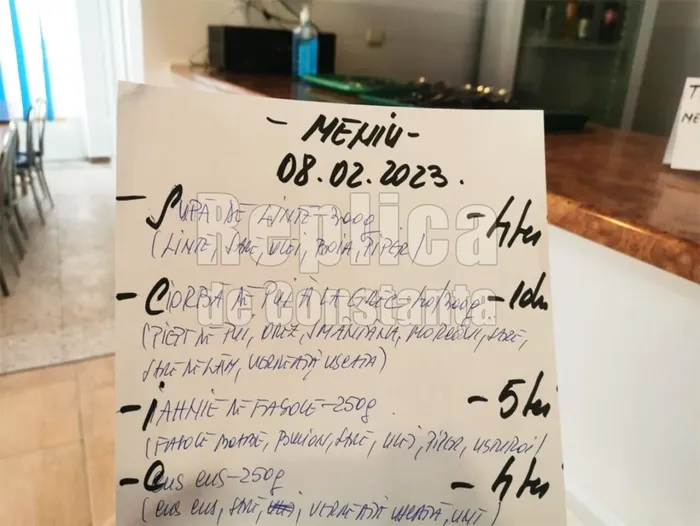 - MENIU -
08.02.2023.
- SUPĂ DE LINTE-300g - 4 lei
(LINTE, SARE, ULEI, BOIA, PIPER)
Replica
de Constanța
- CIORBĂ DE PUI À LA GREC- /300g - 10 lei
(PIEPT DE PUI, OREZ, SMÂNTÂNĂ, MORCOVI, SARE,
SARE DE LĂM, VERDEAȚĂ USCATĂ)
- IAHNIE DE FASOLE-250g. - 5 lei
(FASOLE BOABE, BULION, SARE, ULEI, PIPER, USTUROI)
- CUS CUS-250g - 4 lei
(CUS CUS, SARE, VERDEAȚĂ USCATĂ, UNT)
T
ME